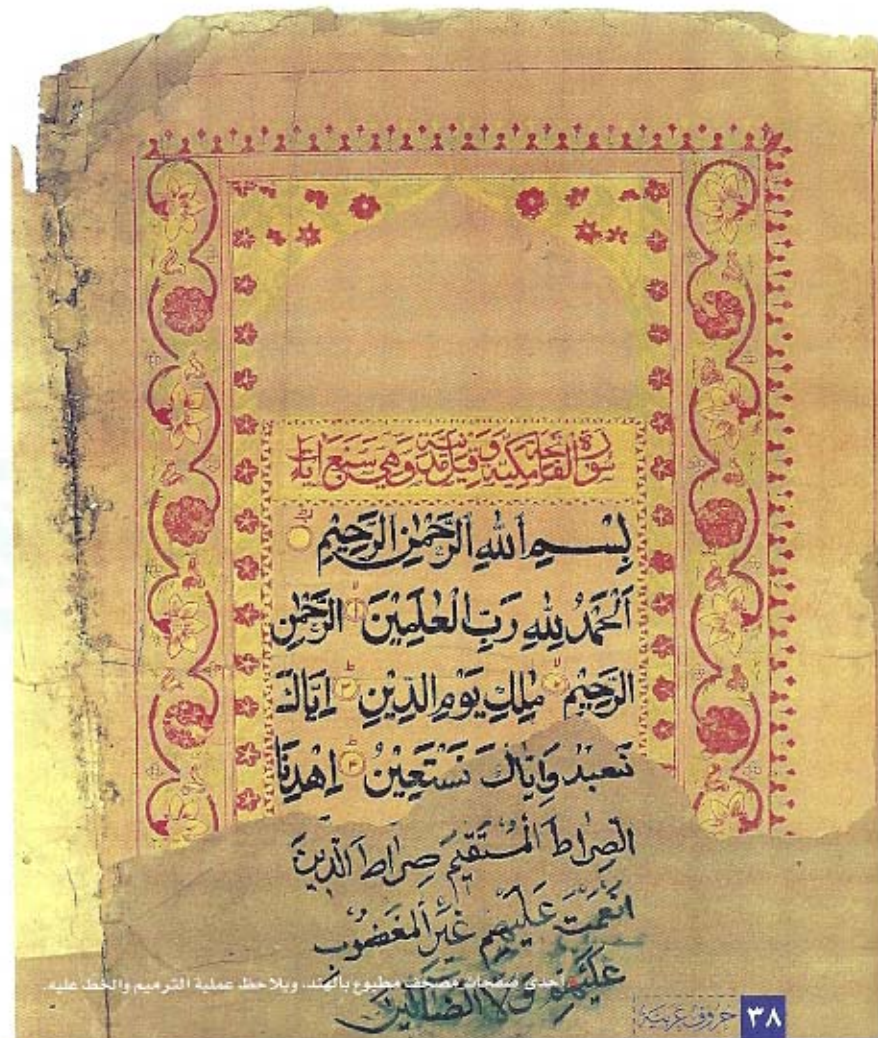 سورة الفاتحة مكية وقيل مدنية وهي سبع ايات
بِسْمِ اللهِ الرَّحْمٰنِ الرَّحِيْمِ
اَلْحَمْدُ لِلهِ رَبِّ الْعٰلَمِيْنَ ١ الرَّحْمٰنِ
الرَّحِيْمِ ٢ مٰلِكِ يَوْمِ الدِّيْنِ ٣ اِيَّاكَ
نَعْبُدُ وَاِيَّاكَ نَسْتَعِيْنُ ٤ اِهْدِنَا
الصِّرَاطَ الْمُسْتَقِيْمَ صِرَاطَ الَّذِيْنَ
اَنْعَمْتَ عَلَيْهِمْ غَيْرِ الْمَغْضُوْبِ
عَلَيْهِمْ وَلَا الضَّالِّيْنَ
إحدى صفحات مصحف مطبوع بالهند، ويلاحظ عملية الترميم والخط عليه.
حروف عربية ٣٨